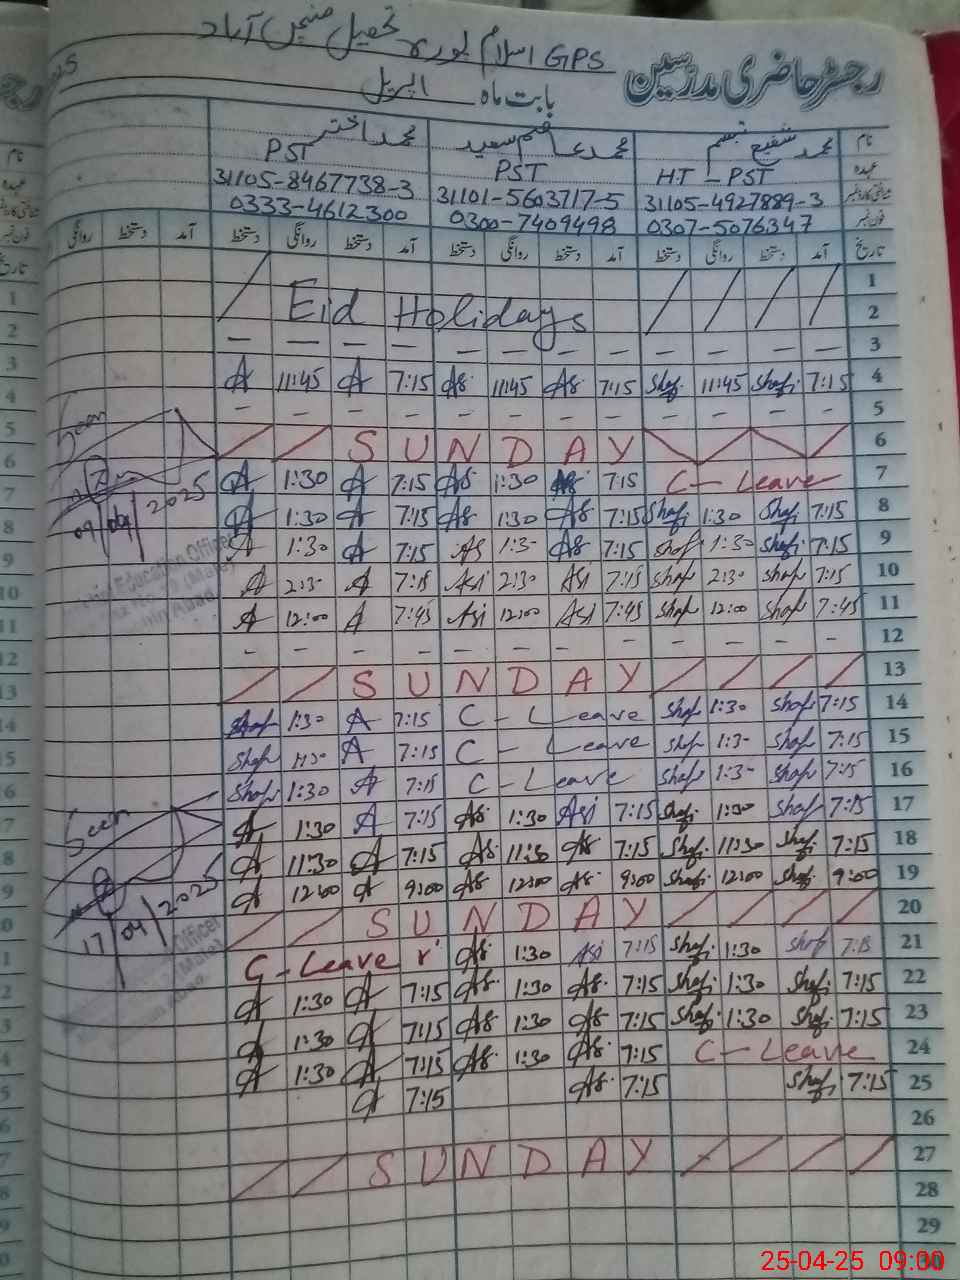 GPS اسلام پورہ تحصیل منچن آباد
رجسٹر حاضری مدرسین
بابت ماہ اپریل
نام محمد شفیع تبسم محمد عاصم سعید محمد اختر
عہدہ HT - PST PST PST
31105-4927889-3 31101-5603717-5 31105-8467738-3
فون نمبر 0307-5076347 0300-7409498 0333-4612300
تاریخ آمد دستخط روانگی دستخط آمد دستخط روانگی دستخط آمد دستخط روانگی دستخط آمد دستخط روانگی
1
Eid Holidays 2
— — — — — — — — — — — — 3
A 11:45 A 7:15 As. 11:45 As 7:15 Shafi. 11:45 Shafi. 7:15 4
- - - - - - - - - - - - 5
/ / S U N D A Y \ / \ / 6
A 1:30 A 7:15 As 1:30 As 7:15 C - Leave 7
A 1:30 A 7:15 As 1:30 As 7:15 Shafi. 1:30 Shafi. 7:15 8
A 1:30 A 7:15 As 1:3- As 7:15 Shaf 1:30 Shafi. 7:15 9
A 2:3- A 7:15 Asi 2:30 Asi 7:15 Shaf 2:30 Shaf 7:15 10
A 12:00 A 7:45 Asi 12:00 Asi 7:45 Shaf 12:00 Shaf 7:45 11
- - - - - - - - - - - 12
/ / S U N D A Y / / / / 13
Shaf 1:30 A 7:15 C - Leave Shaf 1:30 Shafi 7:15 14
Shaf A 7:15 C - Leave Shaf 1:3- Shaf 7:15 15
Shaf 1:30 A 7:15 C - Leave Shaf 1:3- Shaf 7:15 16
A 1:30 A 7:15 As 1:30 Asi 7:15 Shafi. 1:30 Shaf 7:15 17
A 11:30 A 7:15 As. 11:30 As 7:15 Shafi. 11:30 Shafi. 7:15 18
A 12:00 A 9:00 As 12:00 As. 9:00 Shafi. 12:00 Shafi. 9:00 19
/ / S U N D A Y / / / / 20
C - Leave As. 1:30 Asi 7:15 Shafi. 1:30 Shaf 7:15 21
A 1:30 A 7:15 As. 1:30 As. 7:15 Shafi. 1:30 Shafi. 7:15 22
A 1:30 A 7:15 As 1:30 As 7:15 Shafi. 1:30 Shafi. 7:15 23
A 1:30 A 7:15 As 1:30 As. 7:15 C - Leave 24
A 7:15 As. 7:15 Shafi. 7:15 25
26
/ / S U N D A Y / / / / 27
28
29
30
Seen
09/04/2025
Education Officer
(Male)
Seen
17/04/2025
Officer
(Male)
25-04-25 09:00